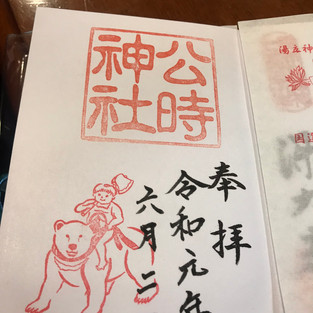 公時
神社
奉拝
令和元年
六月二
湯立神